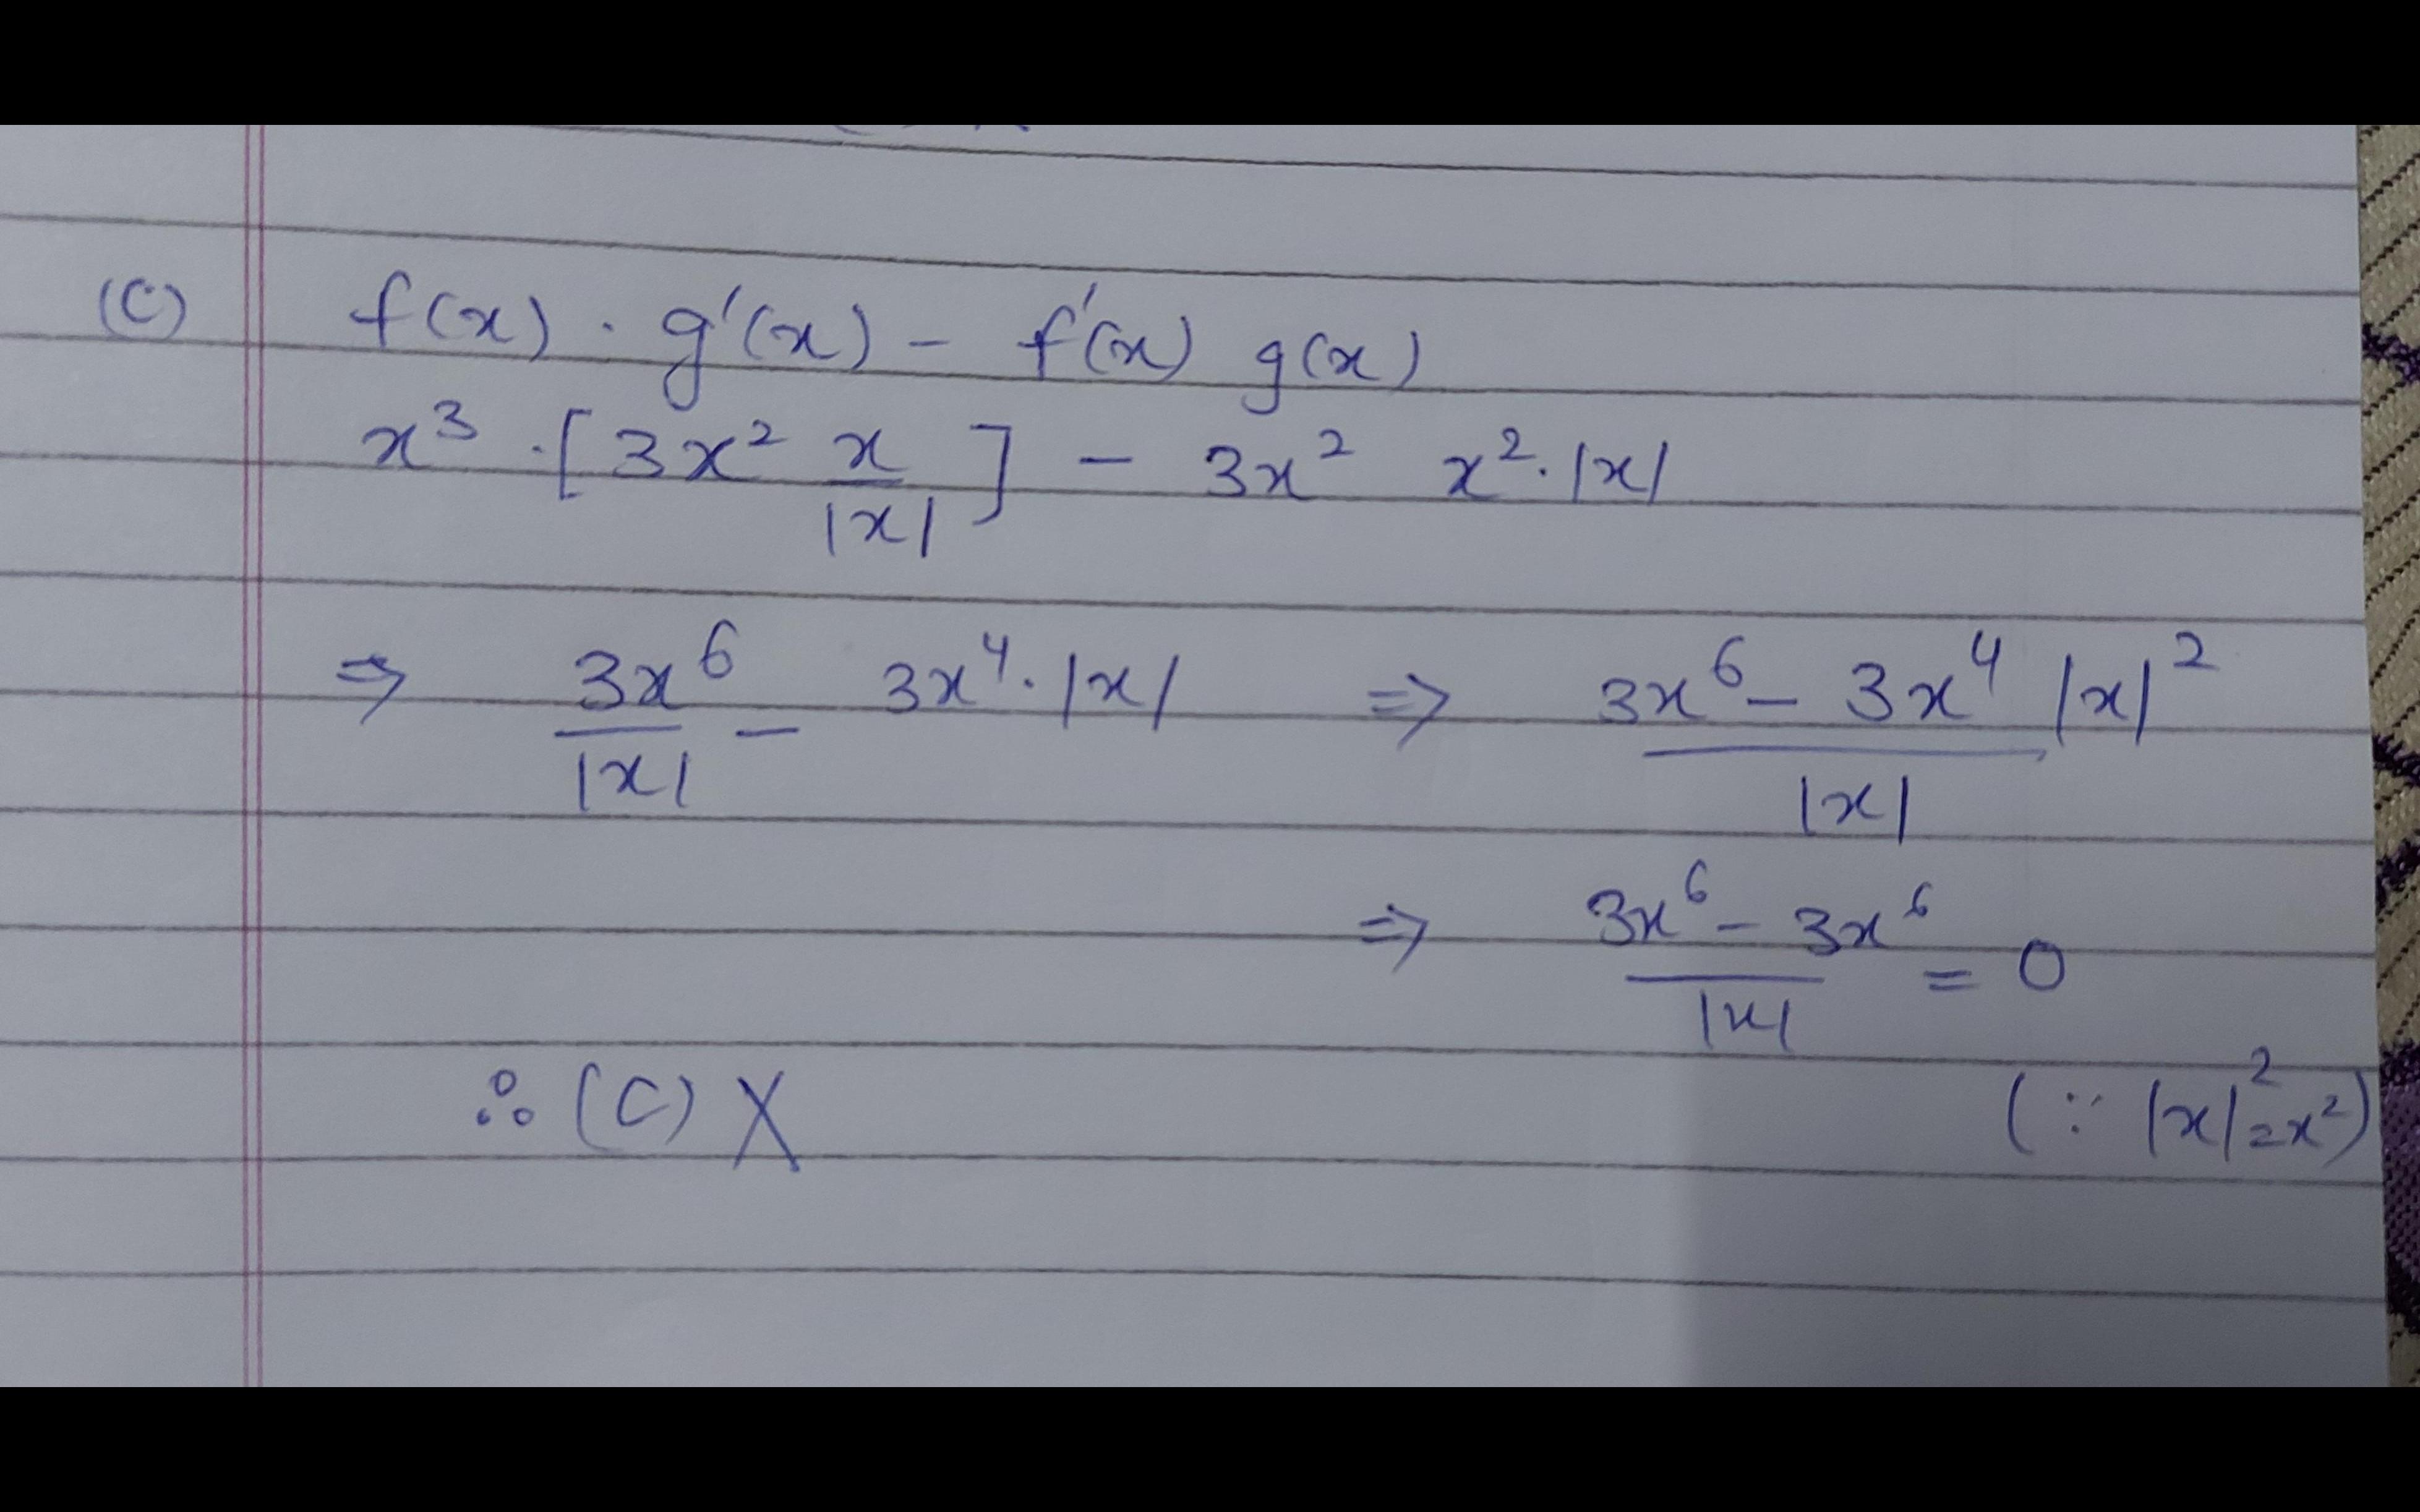 (C) f(x) · g'(x) - f'(x) g(x)
x³ · [3x² x/|x|] - 3x² x² · |x|
⇒ 3x⁶/|x| - 3x⁴ · |x| ⇒ (3x⁶ - 3x⁴ |x|²)/|x|
⇒ (3x⁶ - 3x⁶)/|x| = 0
∴ (C) X (∵ |x|² = x²)